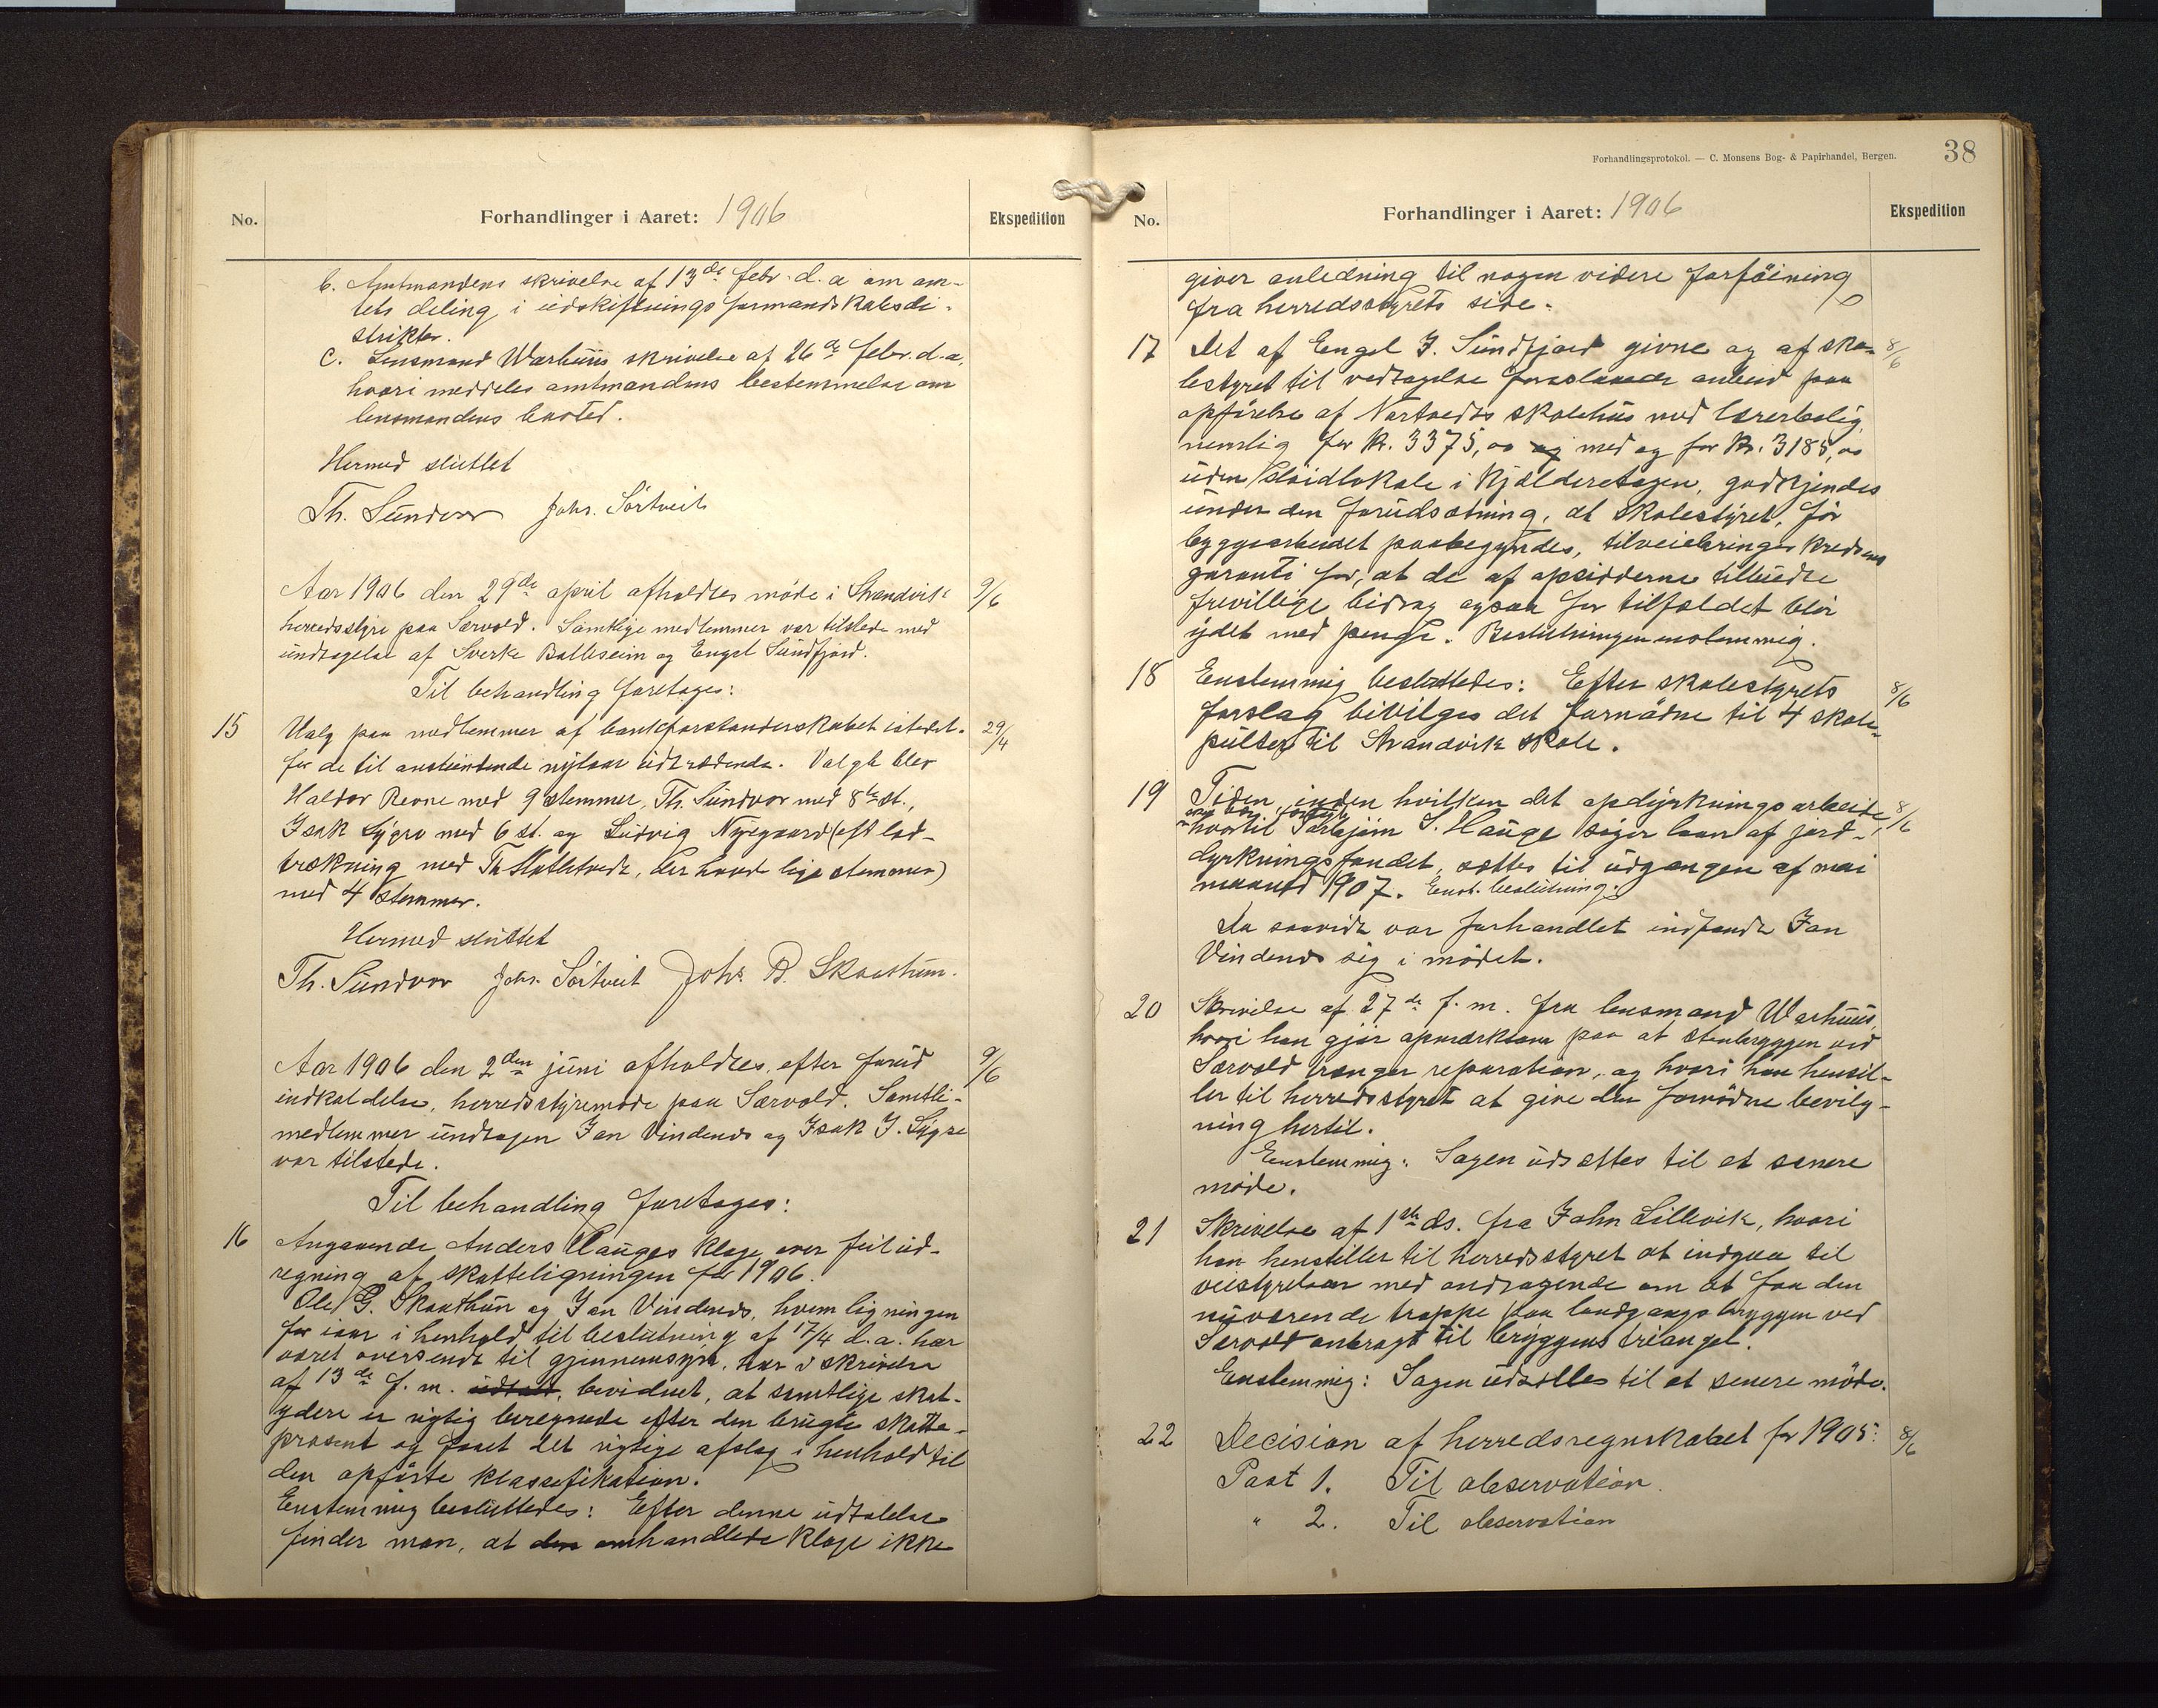 No.
Forhandlinger i Aaret: 1906
Ekspedition
b. Amtmandens skrivelse af 13de febr. d. a om am-
tets deling i udskiftningsformandskabsdi-
strikter.
c. Lensmand Warhuus skrivelse af 26de febr. d. a.
hvori meddeles amtmandens bestemmelse om
lensmandens bosted.
Hermed sluttet
Th. Sundvor Johs. Sörtveit
Aar 1906 den 29de april afholdtes möde i Strandviks 9/6
herredsstyre paa Særvold. Samtlige medlemmer var tilstede med
undtagelse af Sverke Balleseim og Engel Sundfjord.
Til behandling foretoges:
15 Valg paa medlemmer af bankforstanderskabet istedet- 29/4
for de til anstundende nytaar udtrædende. Valgte blev
Haldor Revne med 9 stemmer, Th. Sundvor med 8te st.,
Isak Lygre med 6 st. og Ludvig Nygaard (eft lod-
trækning med Th. , der havde lige stemmer)
med 4 stemmer.
Hermed sluttet
Th. Sundvor Johs. Sörtveit Johs. B. Skaathun.
Aar 1906 den 2den juni afholdtes, efter forud 9/6
indkaldelse, herredsstyremöde paa Særvold. Samtli-
medlemmer undtagen Jan Vindenes og Isak J. Lygre
var tilstede.
Til behandling foretoges:
16 Angaaende Anders Hauges klage over feil ud-
regning af skatteligningen for 1906.
Ole G. Skaathun og Jan Vindenes, hvem ligningen
for iaar i henhold til beslutning af 17/4 d. a. har
været oversendt til gjennemsyn, har i skrivelse
af 13de f. m. udtalt, bevidnet, at samtlige skat-
ydere er rigtig beregnede efter den brugte skatte-
prosent og faaet det rigtige afslag i henhold til
den opförte klassefikation.
Enstemmig besluttedes: Efter denne udtalelse
finder man, at den omhandlede klage ikke
Forhandlingsprotokol. — C. Monsens Bog- & Papirhandel, Bergen.
38
No.
Forhandlinger i Aaret: 1906
Ekspedition
giver anledning til nogen videre forföining
fra herredsstyrets side.
17 Det af Engel J. Sundfjord givne og af sko- 8/6
lestyret til vedtagelse foreslaaede anbud paa
opförelse af Nortvedts skolehus med lærerbolig,
nemlig for kr. 3375,00 og med og for kr. 3185,00
uden slöidlokale i kjælderetagen, godkjendes
under den forudsætning, at skolestyret, för
byggearbeidet paabegyndes, tilveiebringer kredsens
garanti for, at de af opsidderne tilbudte
frivillige bidrag ogsaa for tilfældet blir
ydet med penge. Beslutningen enstemmig.
18 Enstemmig besluttedes: Efter skolestyrets 8/6
forslag bevilges det fornödne til 4 skole-
pulter til Strandvik skole.
19 Tiden, inden hvilken det opdyrkningsarbeide, 8/6
hvortil Torbjörn S. Hauge söger laan af jord-
dyrkningsfondet, sættes til udgangen af mai
maaned 1907. Enst. beslutning.
Da saavidt var forhandlet indfandt Jan
Vindenes sig i mödet.
20 Skrivelse af 27de f. m. fra lensmand Warhuus,
hvori han gjör opmærksom paa at stenbryggen ved
Særvold trænger reparation, og hvori han henstil-
ler til herredsstyret at give den fornödne bevilg-
ning hertil.
Enstemmig: Sagen udsættes til et senere
möde.
21 Skrivelse af 1ste ds. fra John Lillevik, hvori
han henstiller til herredsstyret at indgaa til
veistyrelsen med andragende om at faa den
nuværende trappe paa landgangsbryggen ved
Særvold anbragt til bryggens triangel.
Enstemmig: Sagen udsættes til et senere möde.
22 Decision af herredsregnskabet for 1905: 8/6
Post 1. Til observation.
" 2. Til observation